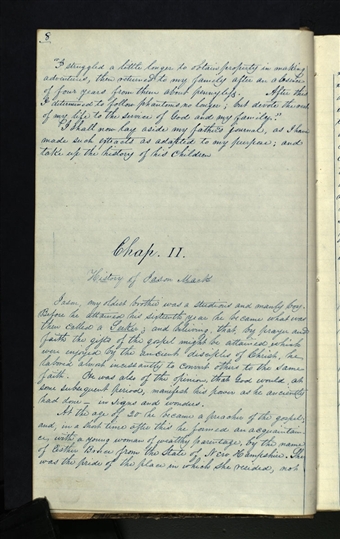 8
"I struggled a little longer to obtain property in making
adventures, then returned to my family after an absence
of four years from them about pennyless. After this
I determined to follow phantoms no longer; but devote the rest
of my life to the service of God and my family."
"I shall now lay aside my father's journal, as I have
made such extracts as adapted to my purpose; and
take up the history of his children
Chap. II.
History of Jason Mack
Jason, my oldest brother was a studious and manly boy.
Before he attained his sixteenth year he became what was
then called a Seeker; and believing, that, by prayer and
faith the gifts of the gospel might be attained which
were enjoyed by the ancient disciples of Christ, he
labored almost incessantly to convert others to the same
faith. He was also of the opinion that God would, at
some subsequent period, manifest his power as he anciently
had done — in signs and wonders.
At the age of 20 he became a preacher of the gospel;
and, in a short time after this he formed an acquaintan
ce, with a young woman of wealthy parentage, by the name
of Esther Bruce from the State of New Hampshire. She
was the pride of the place in which she resided, not